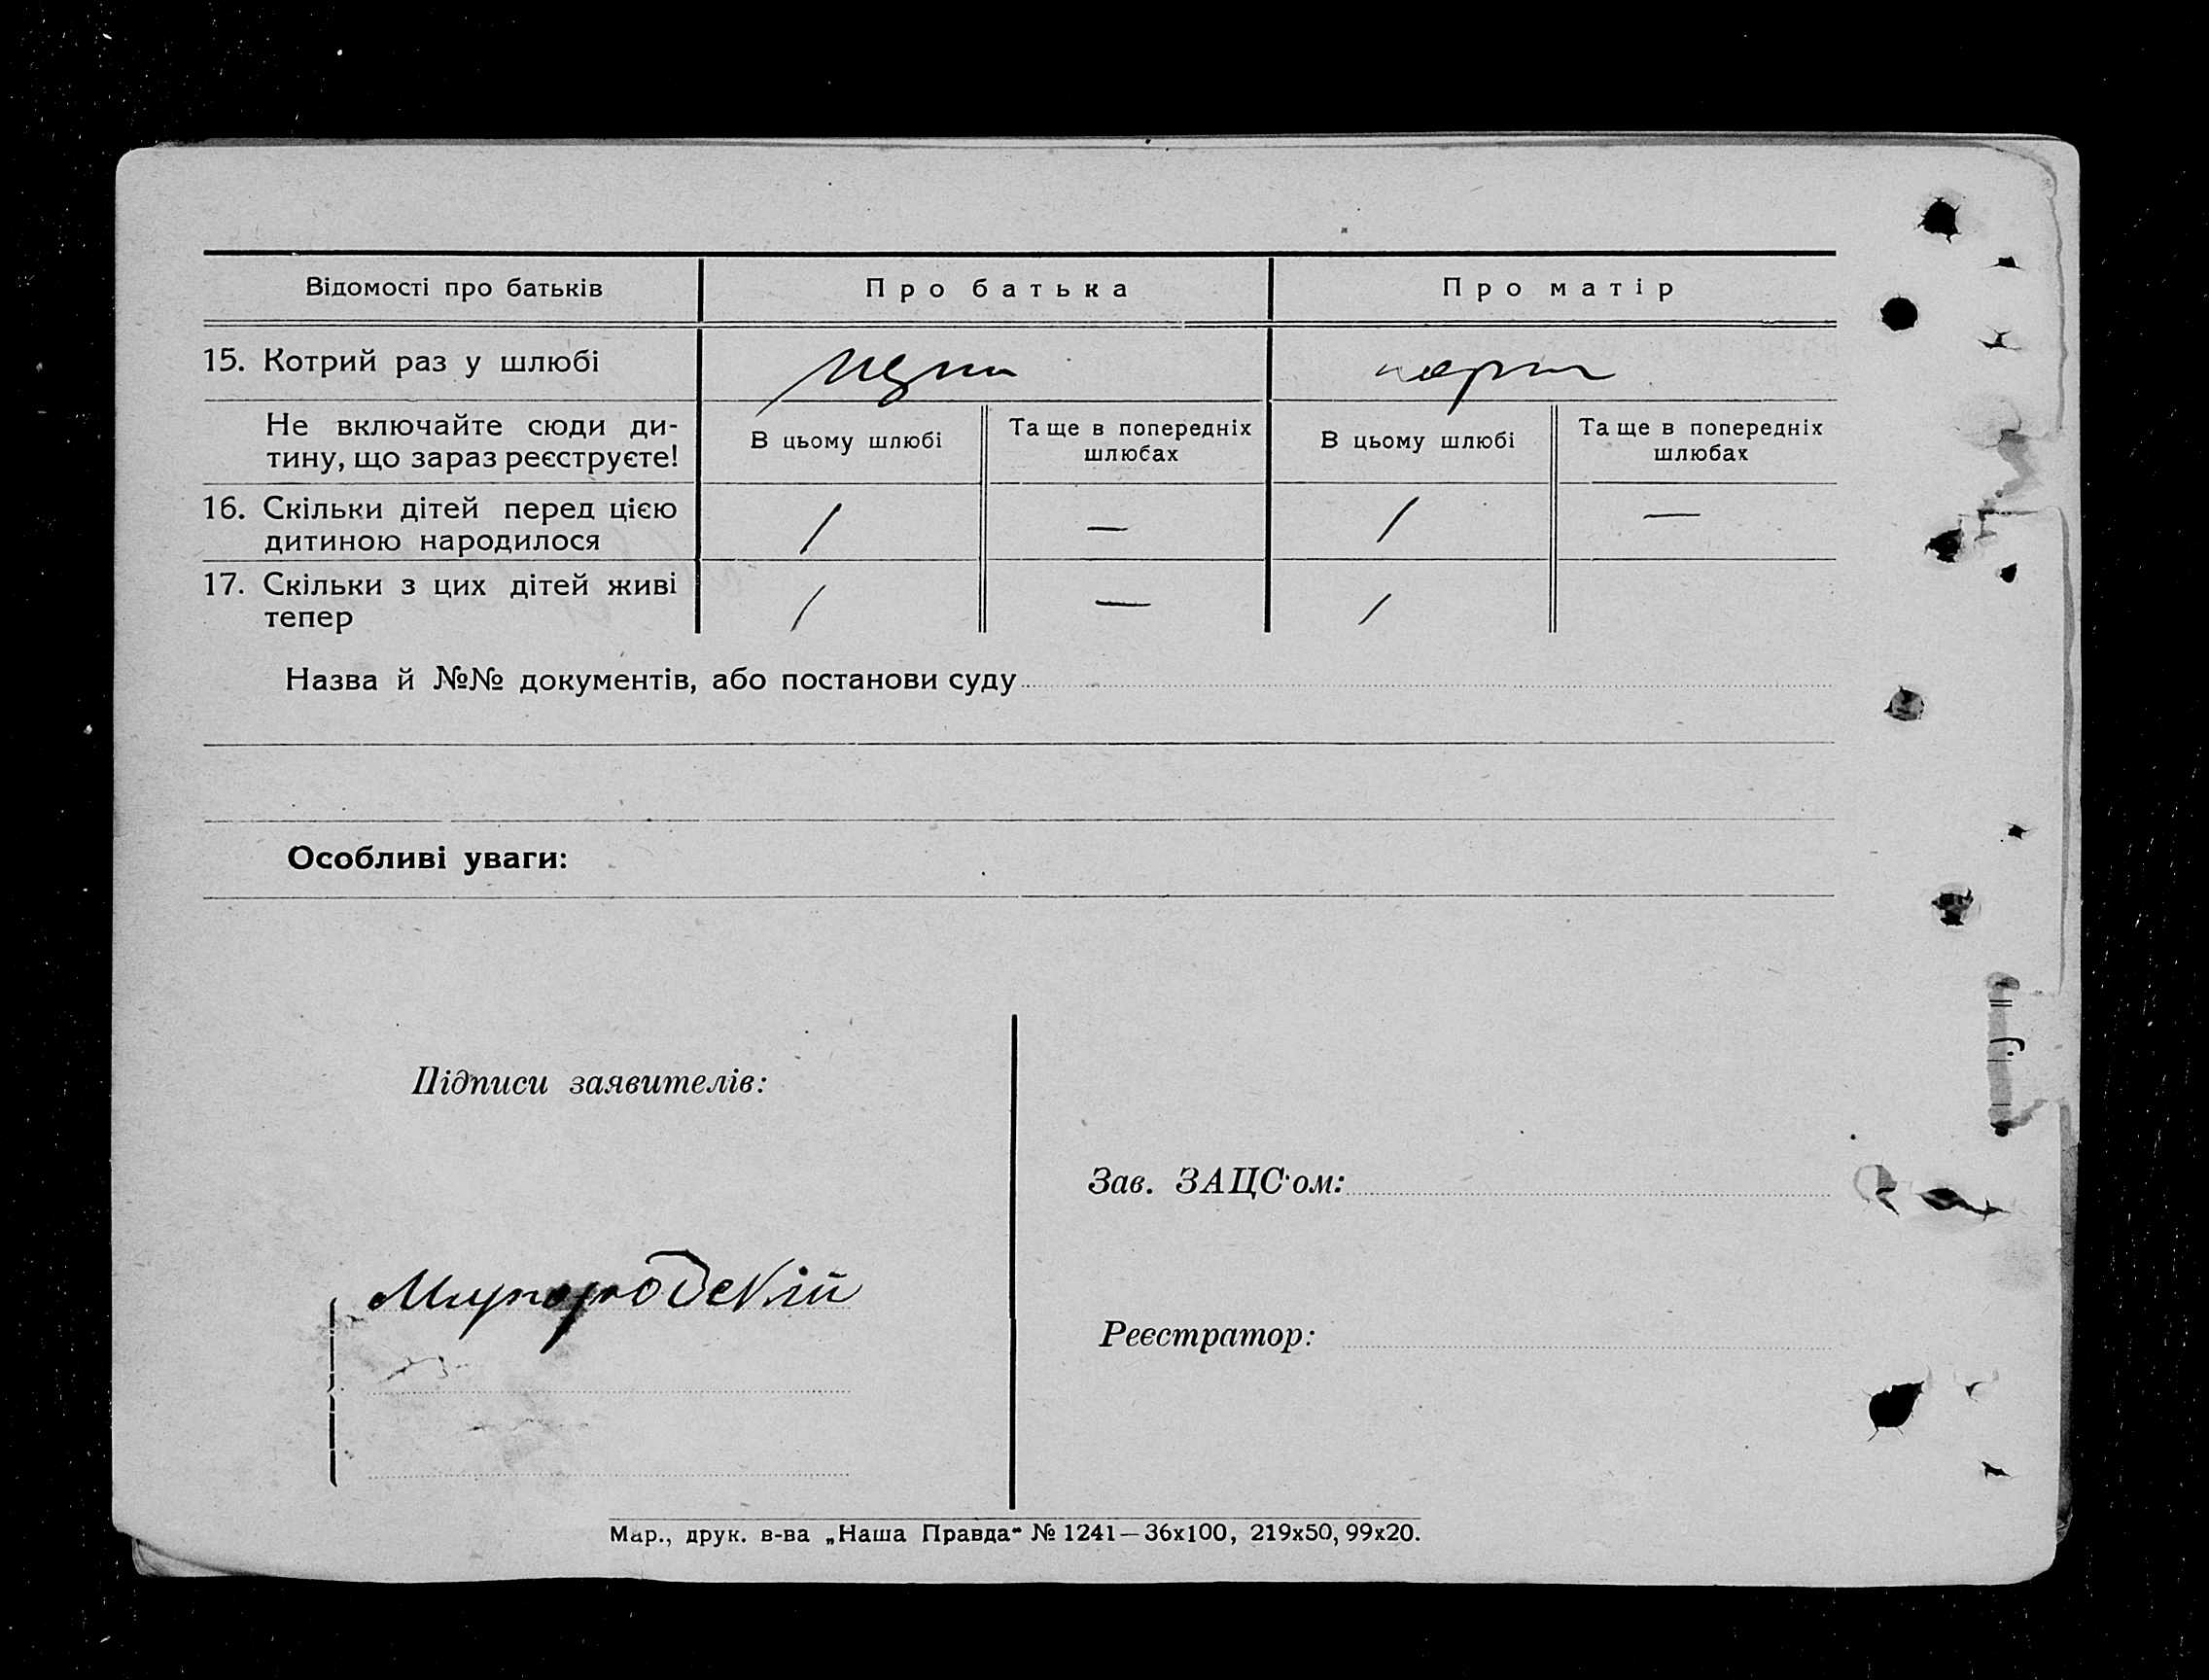 Відомості про батьків Про батька Про матір
15. Котрий раз у шлюбі
Не включайте сюди ди-
тину, що зараз реєструєте!
В цьому шлюбі
Та ще в попередніх
шлюбах
В цьому шлюбі
Та ще в попередніх
шлюбах
16. Скільки дітей перед цією
дитиною народилося
/ — / —
17. Скільки з цих дітей живі
тепер
/ — /
Назва й №№ документів, або постанови суду
Особливі уваги:
Підписи заявителів:
Зав. ЗАЦС'ом:
Реєстратор:
Мар., друк. в-ва „Наша Правда" № 1241—36х100, 219х50, 99х20.